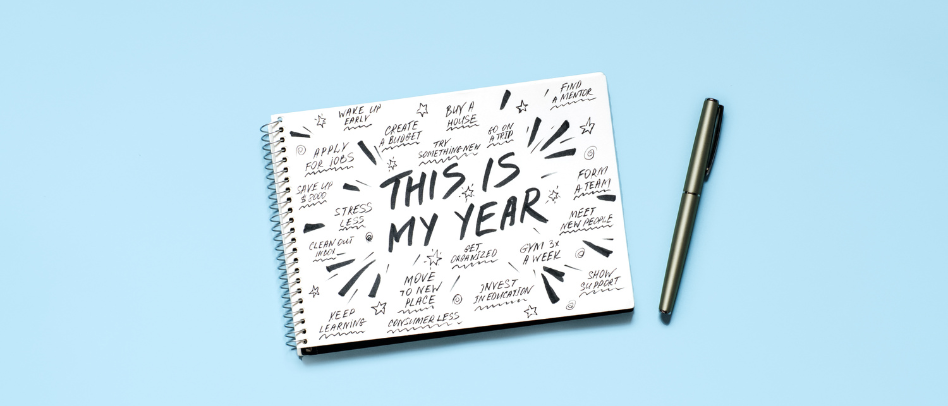 WAKE UP
EARLY
BUY A
HOUSE
FIND
A MENTOR
CREATE
A BUDGET
GO ON
A TRIP
TRY
SOMETHING NEW
APPLY
FOR JOBS
SAVE UP
$2000
FORM
A TEAM
THIS IS
MY YEAR
STRESS
LESS
MEET
NEW PEOPLE
CLEAN OUT
INBOX
GET
ORGANIZED
GYM 3X
A WEEK
MOVE
TO NEW
PLACE
INVEST
IN EDUCATION
SHOW
SUPPORT
KEEP
LEARNING
CONSUMER LESS